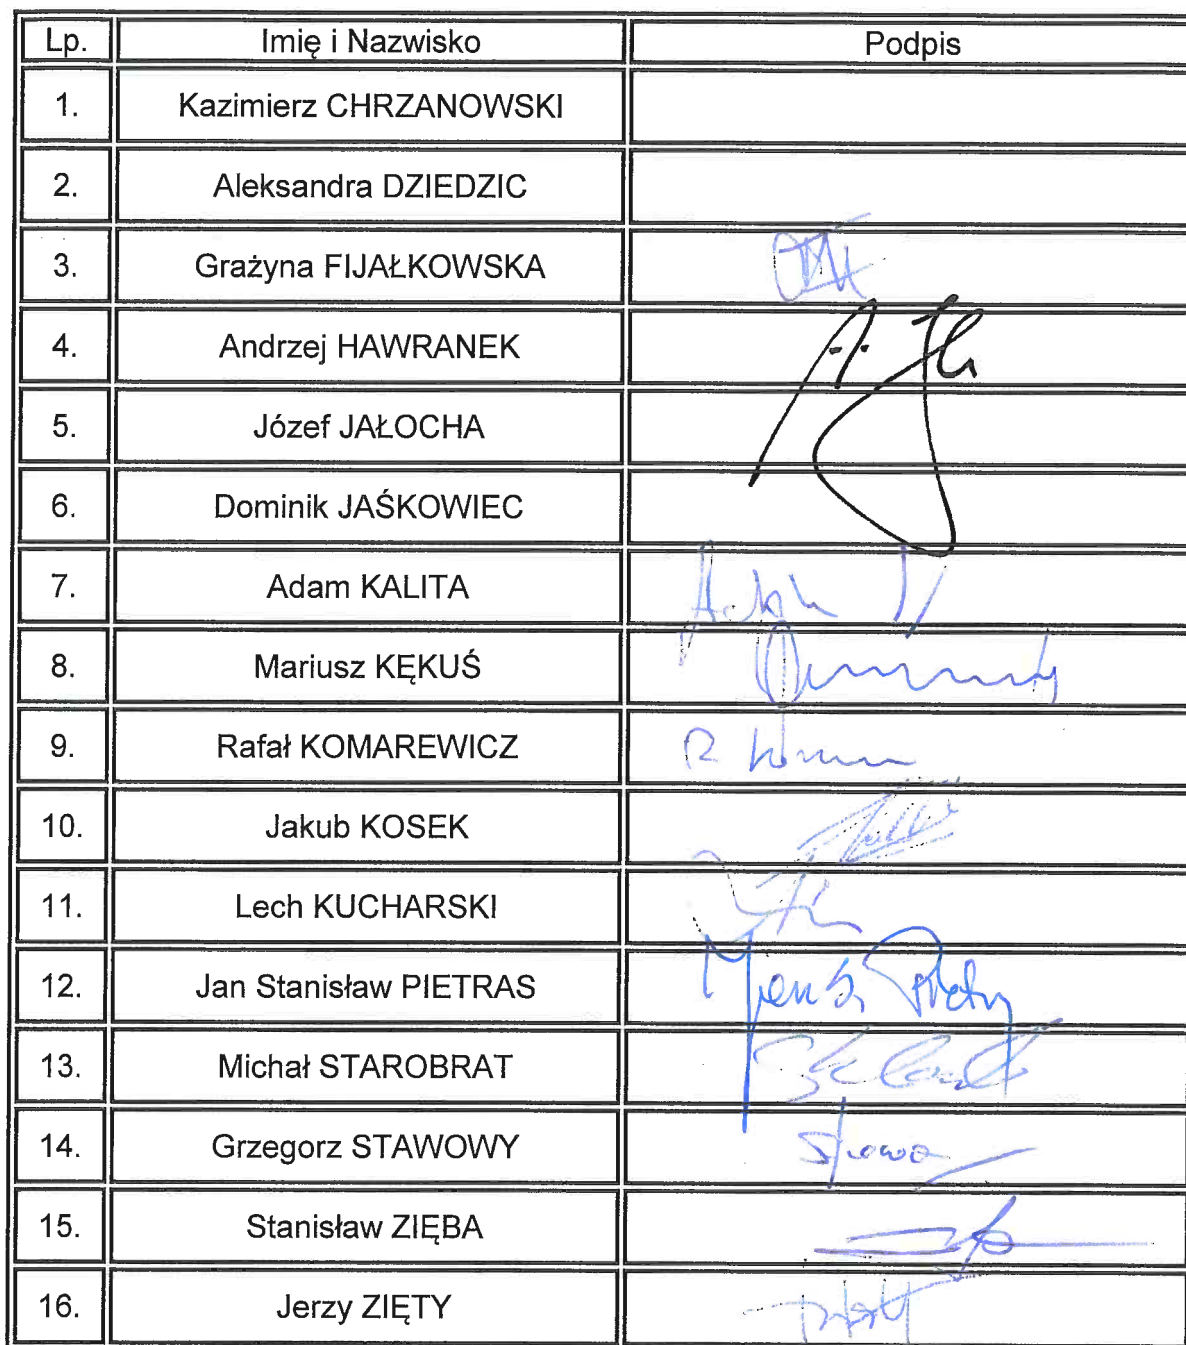 Lp. Imię i Nazwisko Podpis
1. Kazimierz CHRZANOWSKI
2. Aleksandra DZIEDZIC
3. Grażyna FIJAŁKOWSKA
4. Andrzej HAWRANEK
5. Józef JAŁOCHA
6. Dominik JAŚKOWIEC
7. Adam KALITA
8. Mariusz KĘKUŚ
9. Rafał KOMAREWICZ
10. Jakub KOSEK
11. Lech KUCHARSKI
12. Jan Stanisław PIETRAS
13. Michał STAROBRAT
14. Grzegorz STAWOWY
15. Stanisław ZIĘBA
16. Jerzy ZIĘTY